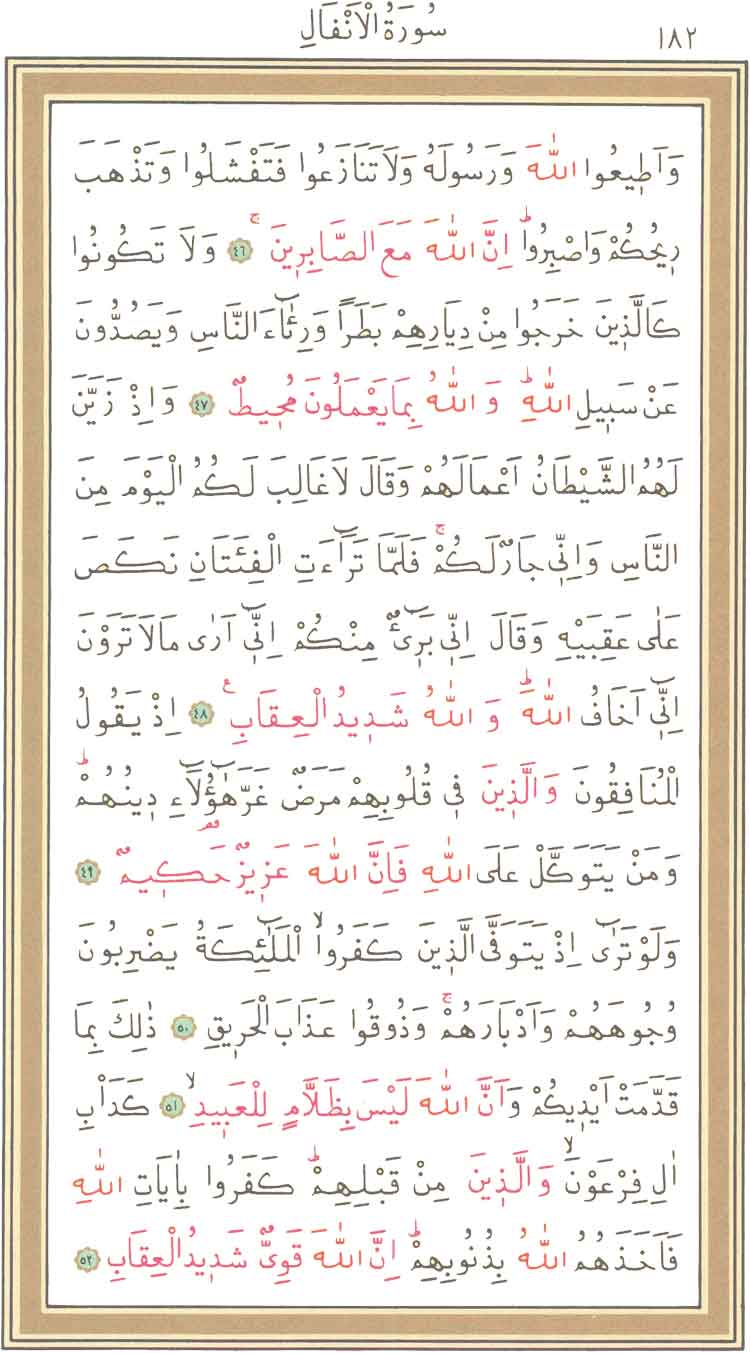 ١٨٢
سُورَةُ الْاَنْفَالِ
وَاَط۪يعُوا اللّٰهَ وَرَسُولَهُ وَلَا تَنَازَعُوا فَتَفْشَلُوا وَتَذْهَبَ
ر۪يحُكُمْ وَاصْبِرُواۜ اِنَّ اللّٰهَ مَعَ الصَّابِر۪ينَۚ ﴿٤٦﴾ وَلَا تَكُونُوا
كَالَّذ۪ينَ خَرَجُوا مِنْ دِيَارِهِمْ بَطَراً وَرِئَٓاءَ النَّاسِ وَيَصُدُّونَ
عَنْ سَب۪يلِ اللّٰهِۜ وَاللّٰهُ بِمَا يَعْمَلُونَ مُح۪يطٌ ﴿٤٧﴾ وَاِذْ زَيَّنَ
لَهُمُ الشَّيْطَانُ اَعْمَالَهُمْ وَقَالَ لَا غَالِبَ لَكُمُ الْيَوْمَ مِنَ
النَّاسِ وَاِنّ۪ي جَارٌ لَكُمْۚ فَلَمَّا تَرَٓاءَتِ الْفِئَتَانِ نَكَصَ
عَلٰى عَقِبَيْهِ وَقَالَ اِنّ۪ي بَر۪ٓيءٌ مِنْكُمْ اِنّ۪ٓي اَرٰى مَا لَا تَرَوْنَ
اِنّ۪ٓي اَخَافُ اللّٰهَۜ وَاللّٰهُ شَد۪يدُ الْعِقَابِ۟ ﴿٤٨﴾ اِذْ يَقُولُ
الْمُنَافِقُونَ وَالَّذ۪ينَ ف۪ي قُلُوبِهِمْ مَرَضٌ غَرَّ هٰٓؤُ۬لَٓاءِ د۪ينُهُمْۜ
وَمَنْ يَتَوَكَّلْ عَلَى اللّٰهِ فَاِنَّ اللّٰهَ عَز۪يزٌ حَك۪يمٌ ﴿٤٩﴾
وَلَوْ تَرٰٓى اِذْ يَتَوَفَّى الَّذ۪ينَ كَفَرُواۙ الْمَلٰٓئِكَةُ يَضْرِبُونَ
وُجُوهَهُمْ وَاَدْبَارَهُمْۚ وَذُوقُوا عَذَابَ الْحَر۪يقِ ﴿٥٠﴾ ذٰلِكَ بِمَا
قَدَّمَتْ اَيْد۪يكُمْ وَاَنَّ اللّٰهَ لَيْسَ بِظَلَّامٍ لِلْعَب۪يدِۙ ﴿٥١﴾ كَدَأْبِ
اٰلِ فِرْعَوْنَۙ وَالَّذ۪ينَ مِنْ قَبْلِهِمْۜ كَفَرُوا بِاٰيَاتِ اللّٰهِ
فَاَخَذَهُمُ اللّٰهُ بِذُنُوبِهِمْۜ اِنَّ اللّٰهَ قَوِيٌّ شَد۪يدُ الْعِقَابِ ﴿٥٢﴾